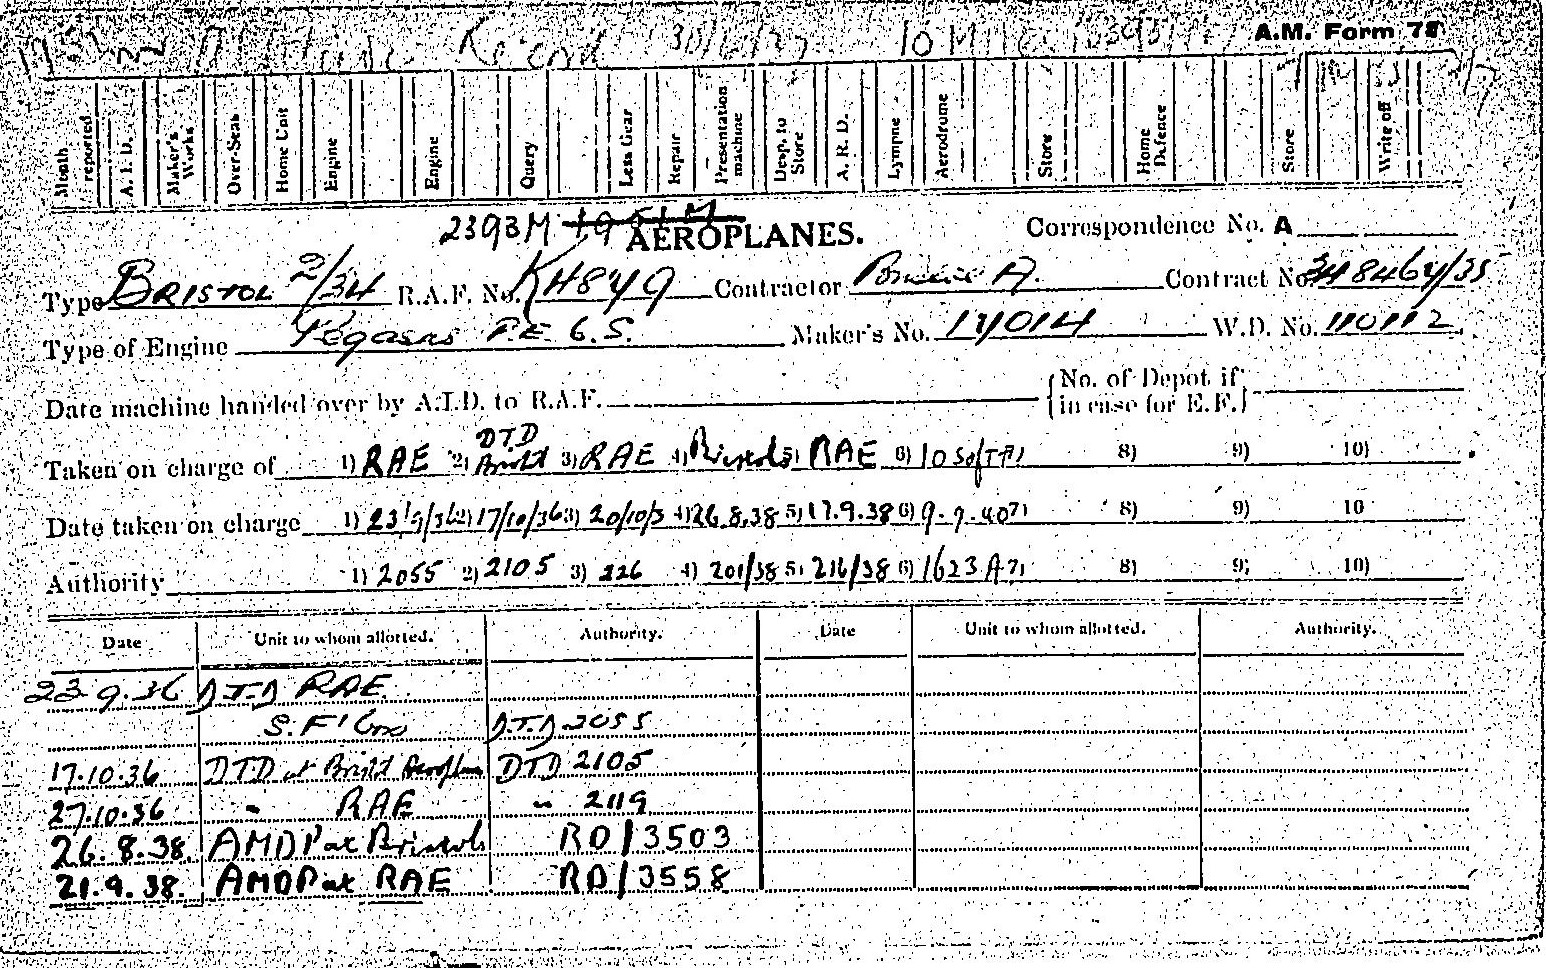 Altitude Record 30/6/37 10 MU
A.M. Form 78
Month reported A.I.D. Maker's Works Over-Seas Home Unit Engine Engine Query Less Gear Repair Presentation machine Desp. to Store A.R.D. Lympne Aerodrome Store Home Defence Store Write off
2393M 1951M AEROPLANES. Correspondence No. A
Type BRISTOL 2/34 R.A.F. No. K4879 Contractor Bristol A. Contract No. 348464/35
Type of Engine Pegasus P.E. 6.S. Maker's No. W.D. No. 110112
Date machine handed over by A.I.D. to R.A.F. {No. of Depot if in case for E.F.}
Taken on charge of 1) RAE 2) DTD Bristol 3) RAE 4) Bristols 5) RAE 6) 10 S of TT 7) 8) 9) 10)
Date taken on charge 1) 23/9/36 2) 17/10/36 3) 20/10/3 4) 26.8.38 5) 17.9.38 6) 9.7.40 7) 8) 9) 10
Authority 1) 2055 2) 2105 3) 226 4) 201/38 5) 216/38 6) 1623A 7) 8) 9) 10)
Date Unit to whom allotted. Authority. Date Unit to whom allotted. Authority.
23.9.36 D.T.D RAE
S.F'Boro D.T.D 2055
17.10.36 DTD at Bristol Aeroplane DTD 2105
27.10.36 " RAE " 2119
26.8.38. AMDP at Bristols RD/3503
21.9.38. AMDP at RAE RD/3558